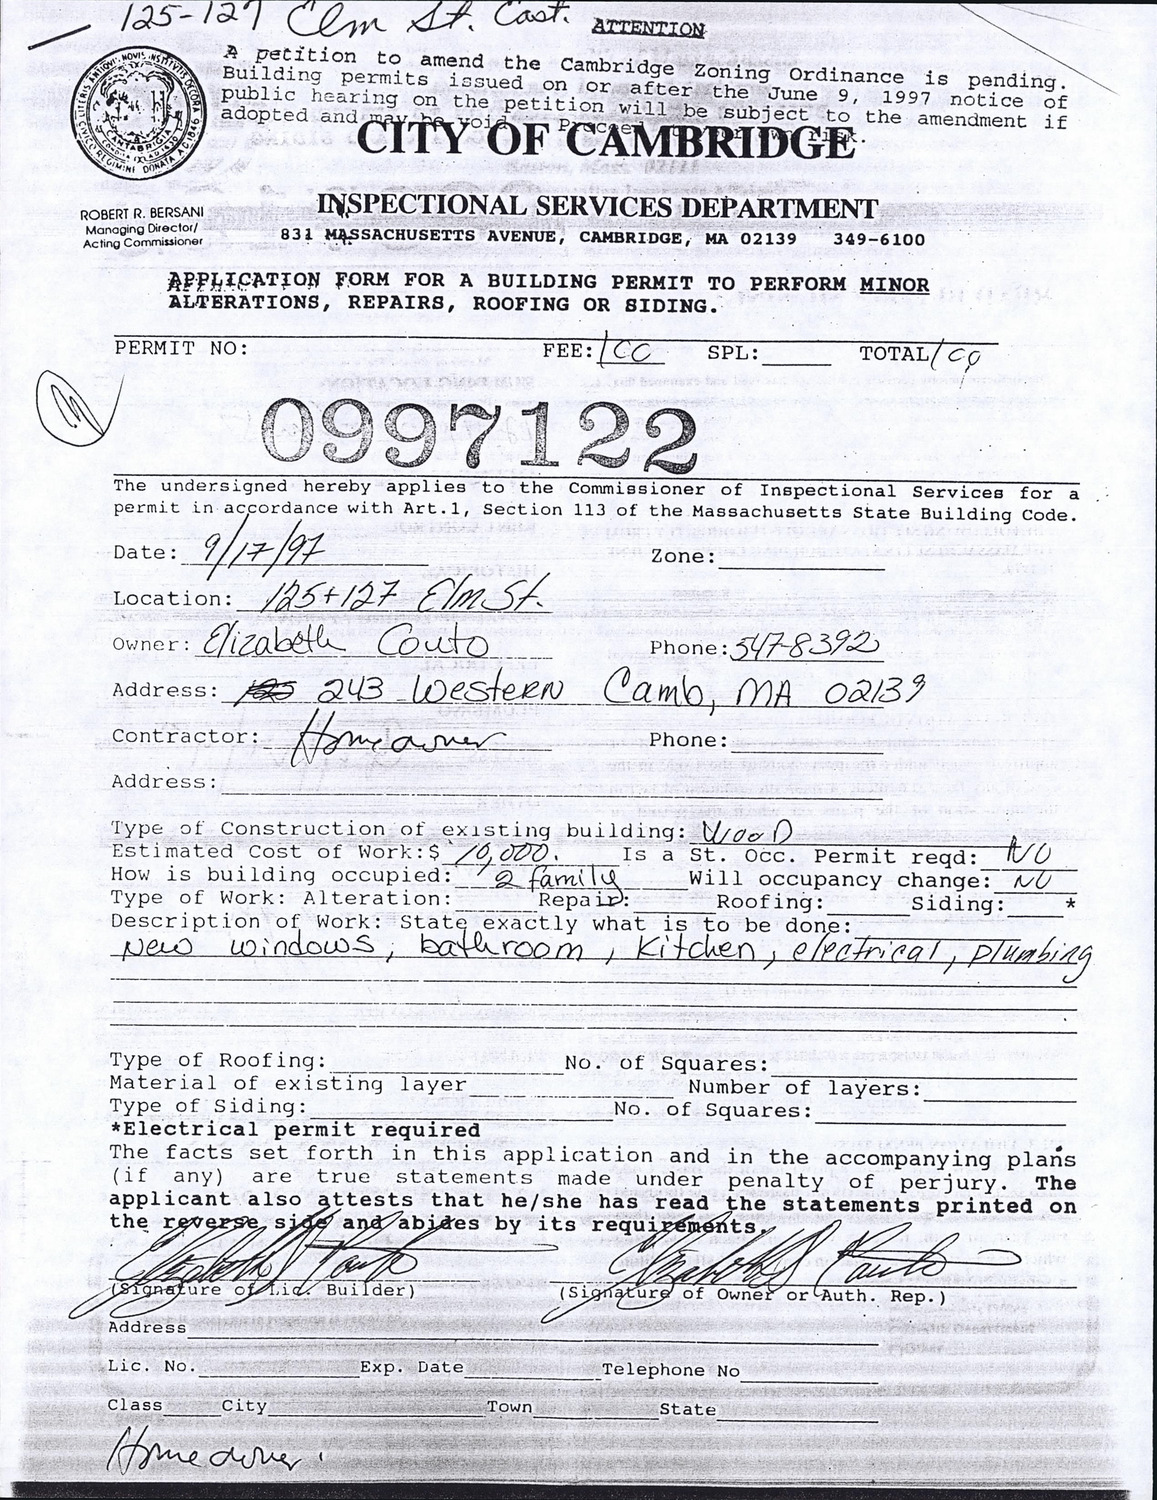 125-127 Elm St. East.
ATTENTION
A petition to amend the Cambridge Zoning Ordinance is pending.
Building permits issued on or after the June 9, 1997 notice of
public hearing on the petition will be subject to the amendment if
adopted and may be void. Proceed at your own risk.
CITY OF CAMBRIDGE
INSPECTIONAL SERVICES DEPARTMENT
831 MASSACHUSETTS AVENUE, CAMBRIDGE, MA 02139 349-6100
ROBERT R. BERSANI
Managing Director/
Acting Commissioner
APPLICATION FORM FOR A BUILDING PERMIT TO PERFORM MINOR
ALTERATIONS, REPAIRS, ROOFING OR SIDING.
PERMIT NO: FEE: 100 SPL: TOTAL 100
0997122
The undersigned hereby applies to the Commissioner of Inspectional Services for a
permit in accordance with Art.1, Section 113 of the Massachusetts State Building Code.
Date: 9/17/97 Zone:
Location: 125+127 Elm St.
Owner: Elizabeth Couto Phone: 547-8392
Address: 243 Western Camb, MA 02139
Contractor: Homeowner Phone:
Address:
Type of Construction of existing building: WOOD
Estimated Cost of Work:$ 10,000. Is a St. Occ. Permit reqd: NO
How is building occupied: 2 family Will occupancy change: NO
Type of Work: Alteration: Repair: Roofing: Siding: *
Description of Work: State exactly what is to be done:
New windows, bathroom, kitchen, electrical, plumbing
Type of Roofing: No. of Squares:
Material of existing layer Number of layers:
Type of Siding: No. of Squares:
*Electrical permit required
The facts set forth in this application and in the accompanying plans
(if any) are true statements made under penalty of perjury. The
applicant also attests that he/she has read the statements printed on
the reverse side and abides by its requirements.
Elizabeth Couto Elizabeth Couto
(Signature of Lic. Builder) (Signature of Owner or Auth. Rep.)
Address
Lic. No. Exp. Date Telephone No
Class City Town State
Homeowner.